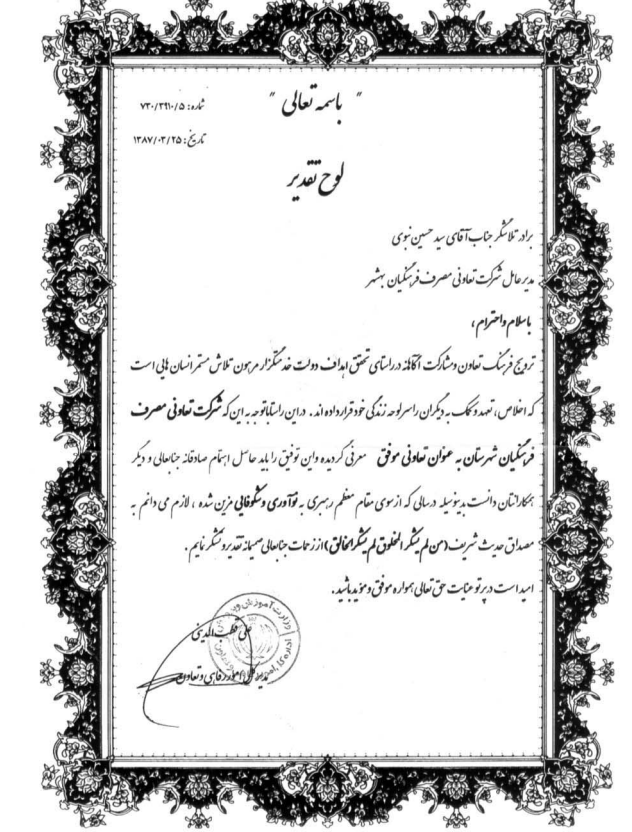 " باسمه تعالی "
شماره: ۷۳۰/۳۹۱۰/۵
تاریخ: ۱۳۸۷/۰۳/۲۵
لوح تقدیر
برادر تلاشگر جناب آقای سید حسین نبوی
مدیر عامل شرکت تعاونی مصرف فرهنگیان بهشهر
باسلام و احترام ،
ترویج فرهنگ تعاون و مشارکت آگاهانه در راستای تحقق اهداف دولت خدمتگزار مرهون تلاش مستمر انسان هایی است
که اخلاص، تعهد و کمک به دیگران را سرلوحه زندگی خود قرار داده اند. در این راستا با توجه به این که شرکت تعاونی مصرف
فرهنگیان شهرستان به عنوان تعاونی موفق معرفی گردیده و این توفیق را باید حاصل اهتمام صادقانه جنابعالی و دیگر
همکارانتان دانست بدینوسیله در سالی که از سوی مقام معظم رهبری به نوآوری و شکوفایی مزین شده ، لازم می دانم به
مصداق حدیث شریف (من لم یشکر المخلوق لم یشکر الخالق) از زحمات جنابعالی صمیمانه تقدیر و تشکر نمایم .
امید است در پرتو عنایت حق تعالی همواره موفق و موید باشید .
علی قطب الدینی
مدیر کل امور رفاهی و تعاون
وزارت آموزش و پرورش